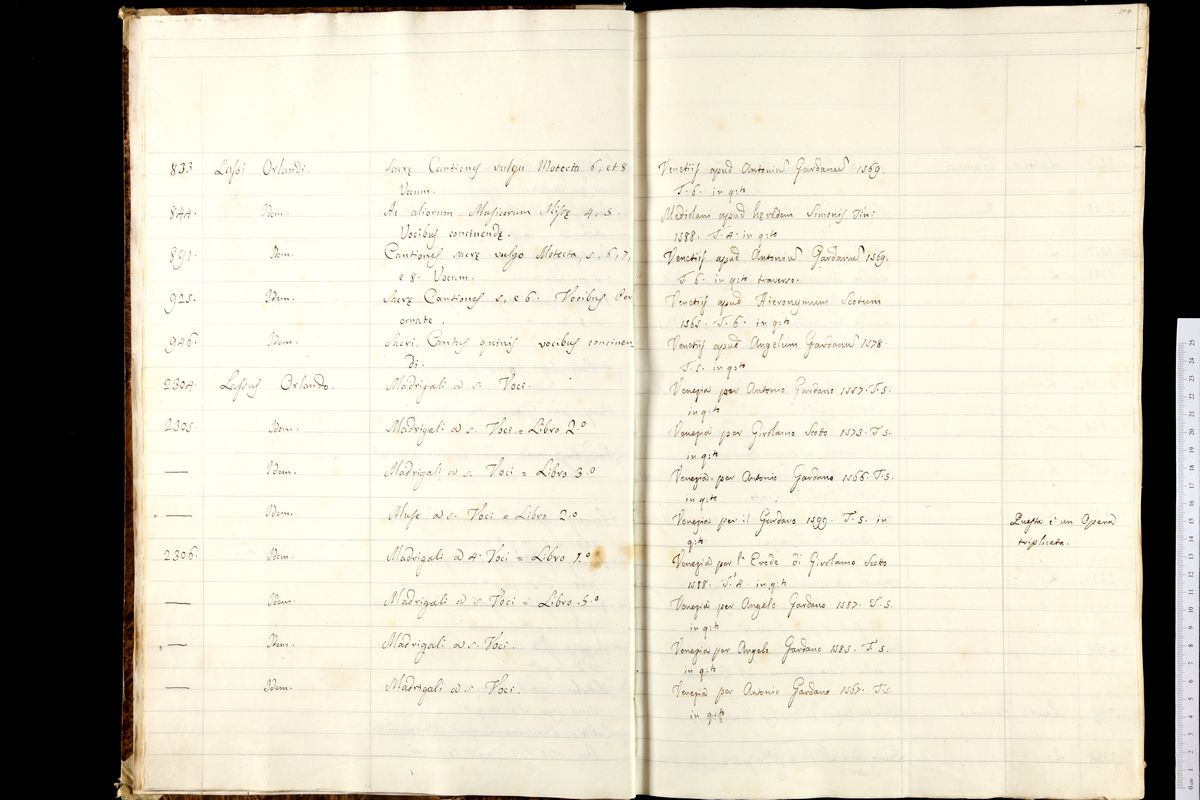 833 Lassi Orlandi. Sacrę Cantiones vulgu Motecta 6, et 8 Venetiis apud Antoniu Gardanu 1569.
Vocum. T. 6. in q:to
844. Idem. Ac aliorum Musicorum Missę 4, 5. Mediolani apud hęredem Simonis Tin:
Vocibus concinendę. 1588. T. 4. in q:to
891. Idem. Cantiones sacrę vulgo Motecta, 5, 6, 7, Venetiis apud Antoniu Gardanu 1569.
e 8. Vocum. T. 6. in q:to traverso.
925. Idem. Sacrę Cantiones 5, e 6. Vocibus Per Venetiis apud Hieronymum Scotum
ornate. 1565. T. 6. in q:to
946. Idem. Sacri Cantus quinis vocibus concinen- Venetiis apud Angelum Gardanu 1578.
di. T. 5. in q:to
2304. Lassus Orlando. Madrigali a 5. Voci. Venezia per Antonio Gardano 1557. T. 5.
in q:to
2305. Idem. Madrigali a 5. Voci = Libro 2.o Venezia per Girolamo Scotto 1573. T. 5.
in q:to
— Idem. Madrigali a 5. Voci = Libro 3.o Venezia per Antonio Gardano 1566. T. 5.
in q:to
— Idem. Muse a 5. Voci = Libro 2.o Venezia per il Gardano 1599. T. 5. in Questa è un Opera
q:to triplicata.
2306. Idem. Madrigali a 4. Voci = Libro 1.o Venezia per l'Erede di Girolamo Scotto
1588. T. 4. in q:to
— Idem. Madrigali a 5 Voci = Libro 5.o Venezia per Angelo Gardano 1587. T. 5.
in q:to
— Idem. Madrigali a 5. Voci. Venezia per Angelo Gardano 1585. T. 5.
in q:to
— Idem. Madrigali a 5. Voci. Venezia per Antonio Gardano 1567. T. 5.
in q:to